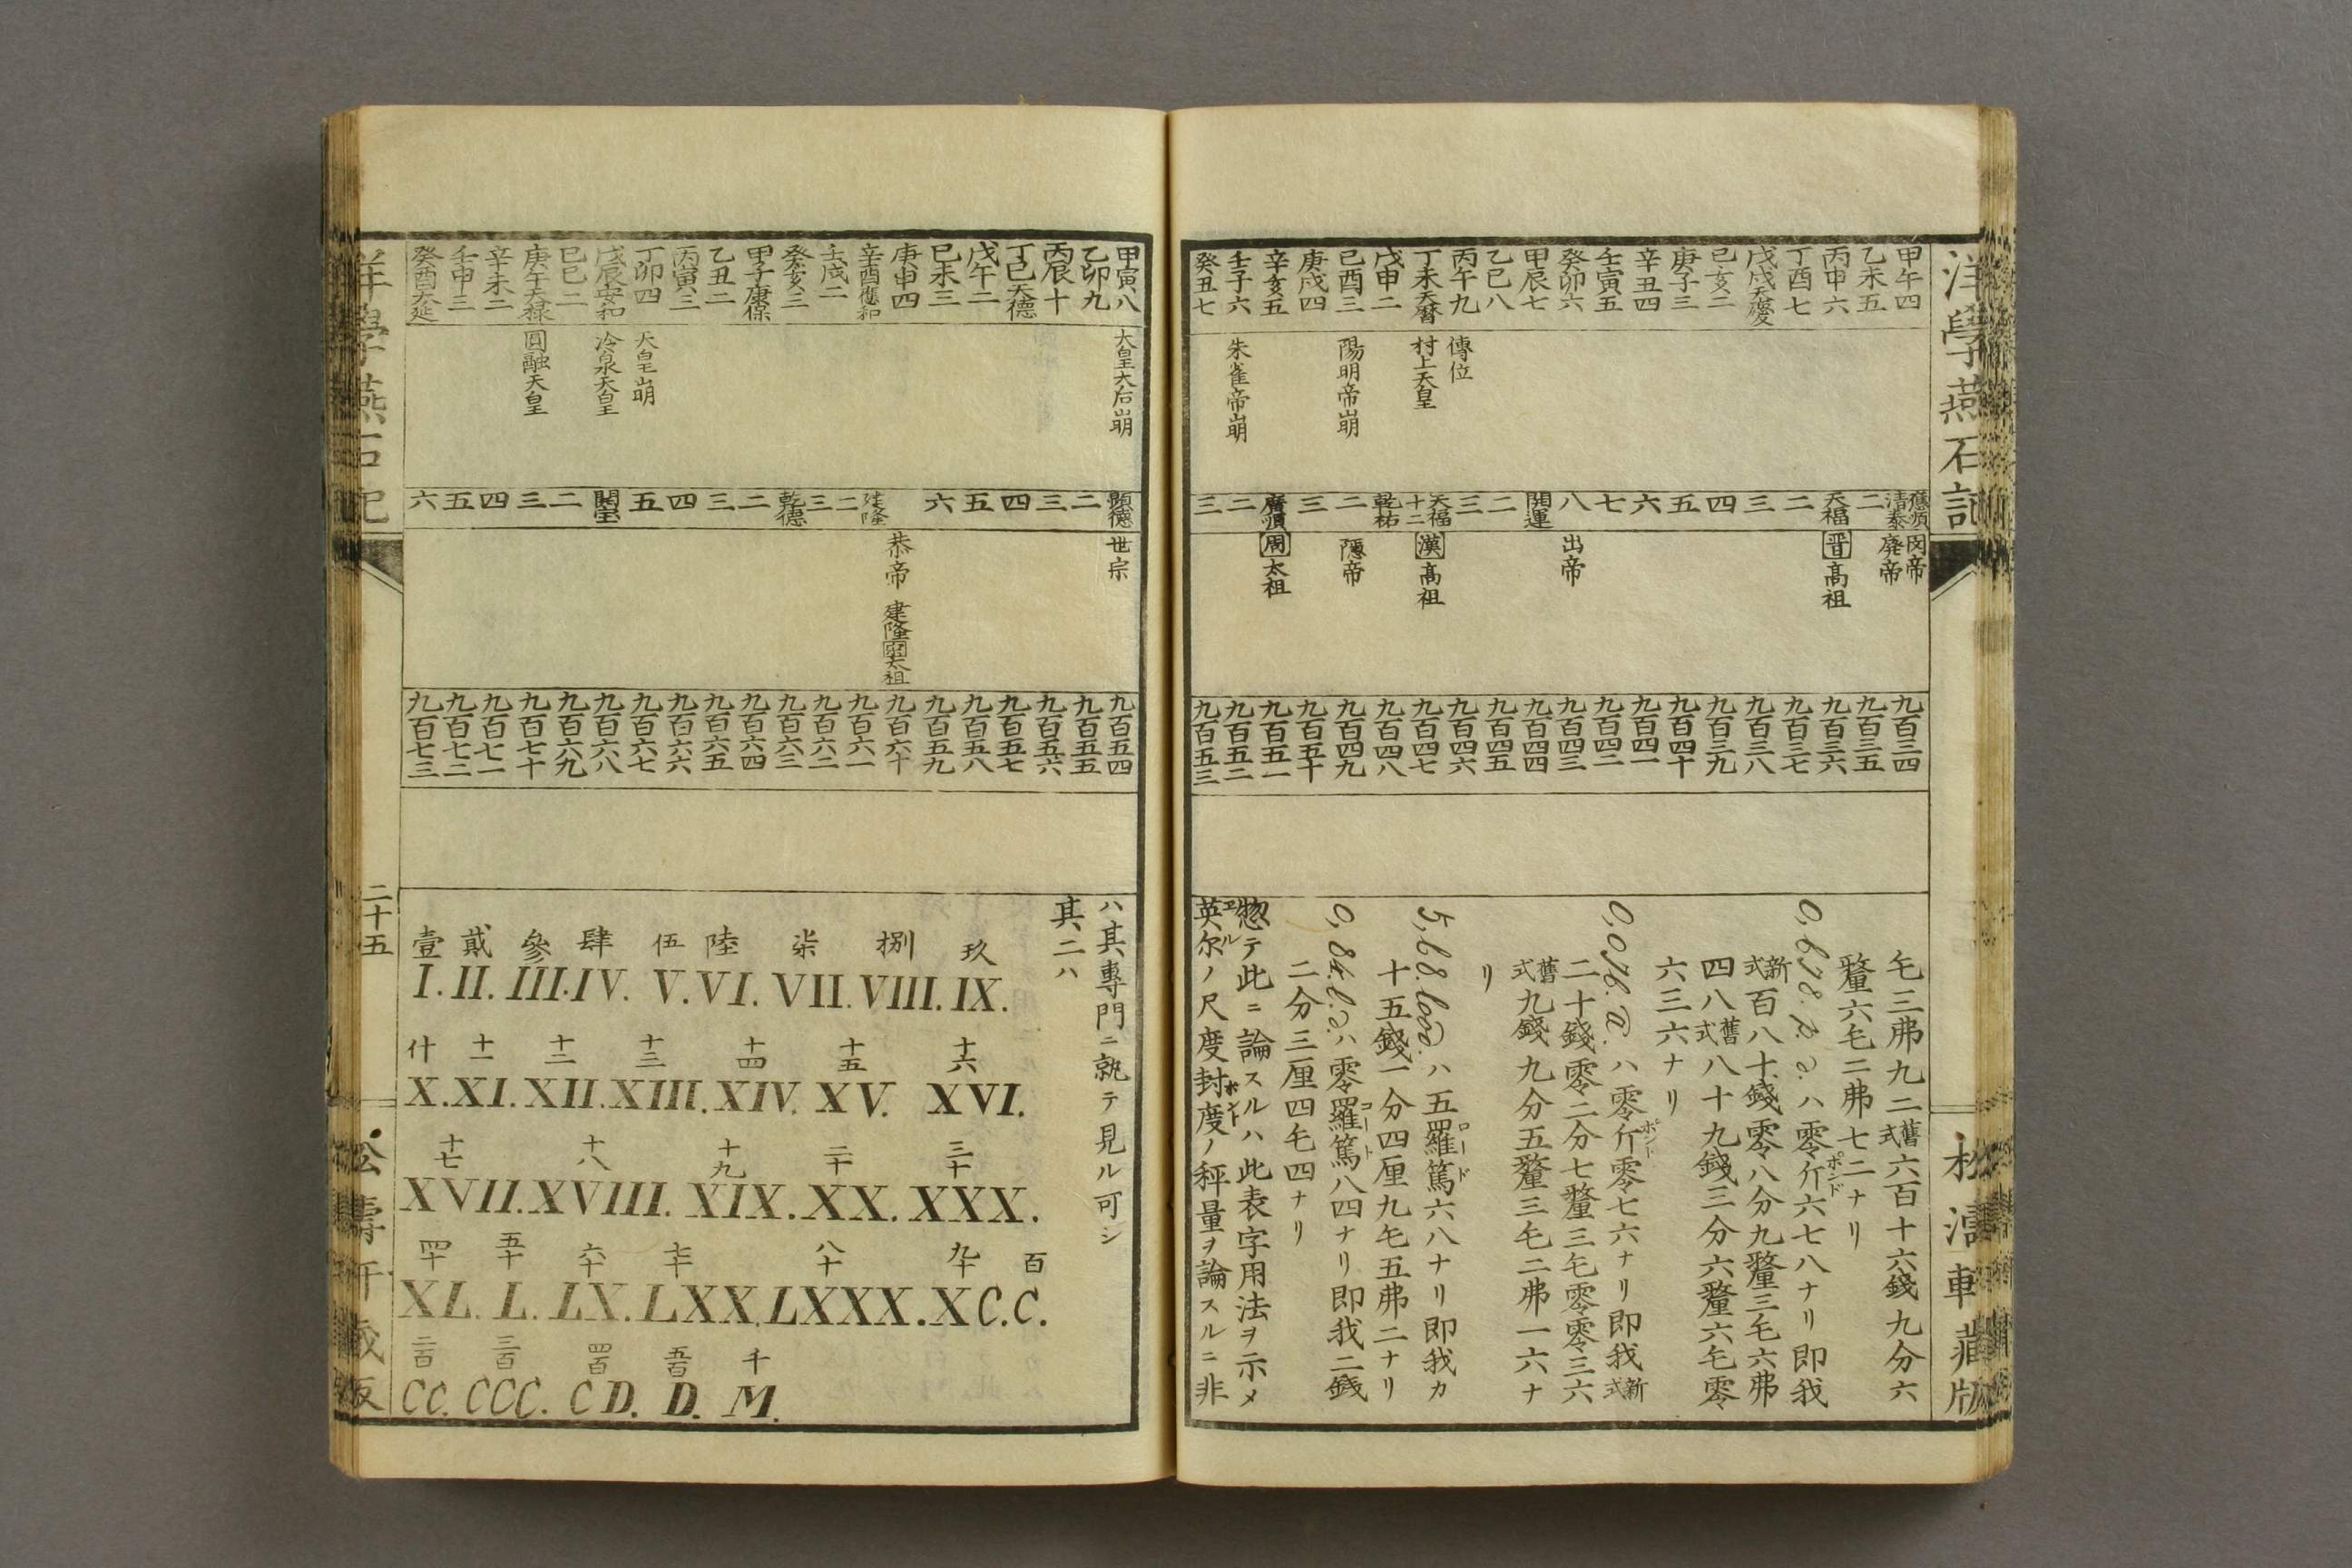 洋學燕石記
甲午四
乙未五
丙申六
丁酉七
戊戌天慶
己亥二
庚子三
辛丑四
壬寅五
癸卯六
甲辰七
乙巳八
丙午九
丁未天暦
戊申二
己酉三
庚戌四
辛亥五
壬子六
癸丑七
傳位
村上天皇
陽明帝崩
朱雀帝崩
應順
清泰
二
天福
二
三
四
五
六
七
八
開運
二
三
天福
十二
乾祐
二
三
廣順
二
三
閔帝
廢帝
晋高祖
出帝
漢高祖
隱帝
周太祖
九百三四
九百三五
九百三六
九百三七
九百三八
九百三九
九百四十
九百四一
九百四二
九百四三
九百四四
九百四五
九百四六
九百四七
九百四八
九百四九
九百五十
九百五一
九百五二
九百五三
乇三弗九二舊式六百十六錢九分六
釐六乇二弗七二ナリ
0,678.℔.a.ハ零斤ポンド六七八ナリ即我
新式百八十錢零八分九釐三乇六弗
四八舊式八十九錢三分六釐六乇零
六三六ナリ
0,076.℔.ハ零斤ポンド零七六ナリ即我新式
二十錢零二分七釐三乇零零三六
舊式九錢九分五釐三乇二弗一六ナ
リ
5,68.lood.ハ五羅篤ロード六八ナリ即我カ
十五錢一分四厘九乇五弗二ナリ
0,84.l.ハ零羅篤ロート八四ナリ即我二錢
二分三厘四乇四ナリ
惣テ此ニ論スルハ此表字用法ヲ示メ
英尓エルノ尺度封度ポントノ秤量ヲ論スルニ非
甲寅八
乙卯九
丙辰十
丁巳天德
戊午二
己未三
庚申四
辛酉應和
壬戌二
癸亥三
甲子康保
乙丑二
丙寅三
丁卯四
戊辰安和
己巳二
庚午天禄
辛未二
壬申三
癸酉天延
大皇大后崩
天皇崩
冷泉天皇
圓融天皇
顯德
二
三
四
五
六
建隆
二
三
乾德
二
三
四
五
開宝
二
三
四
五
六
世宗
恭帝 建隆宋太祖
九百五四
九百五五
九百五六
九百五七
九百五八
九百五九
九百六十
九百六一
九百六二
九百六三
九百六四
九百六五
九百六六
九百六七
九百六八
九百六九
九百七十
九百七一
九百七二
九百七三
ハ其專門ニ就テ見ル可シ
其二ハ
壹 貮 參 肆 伍 陸 柒 捌 玖
I. II. III. IV. V. VI. VII. VIII. IX.
什 十一 十二 十三 十四 十五 十六
X. XI. XII. XIII. XIV. XV. XVI.
十七 十八 十九 二十 三十
XVII. XVIII. XIX. XX. XXX.
四十 五十 六十 七十 八十 九十 百
XL. L. LX. LXX. LXXX. XC. C.
二百 三百 四百 五百 千
CC. CCC. CD. D. M.
二十五